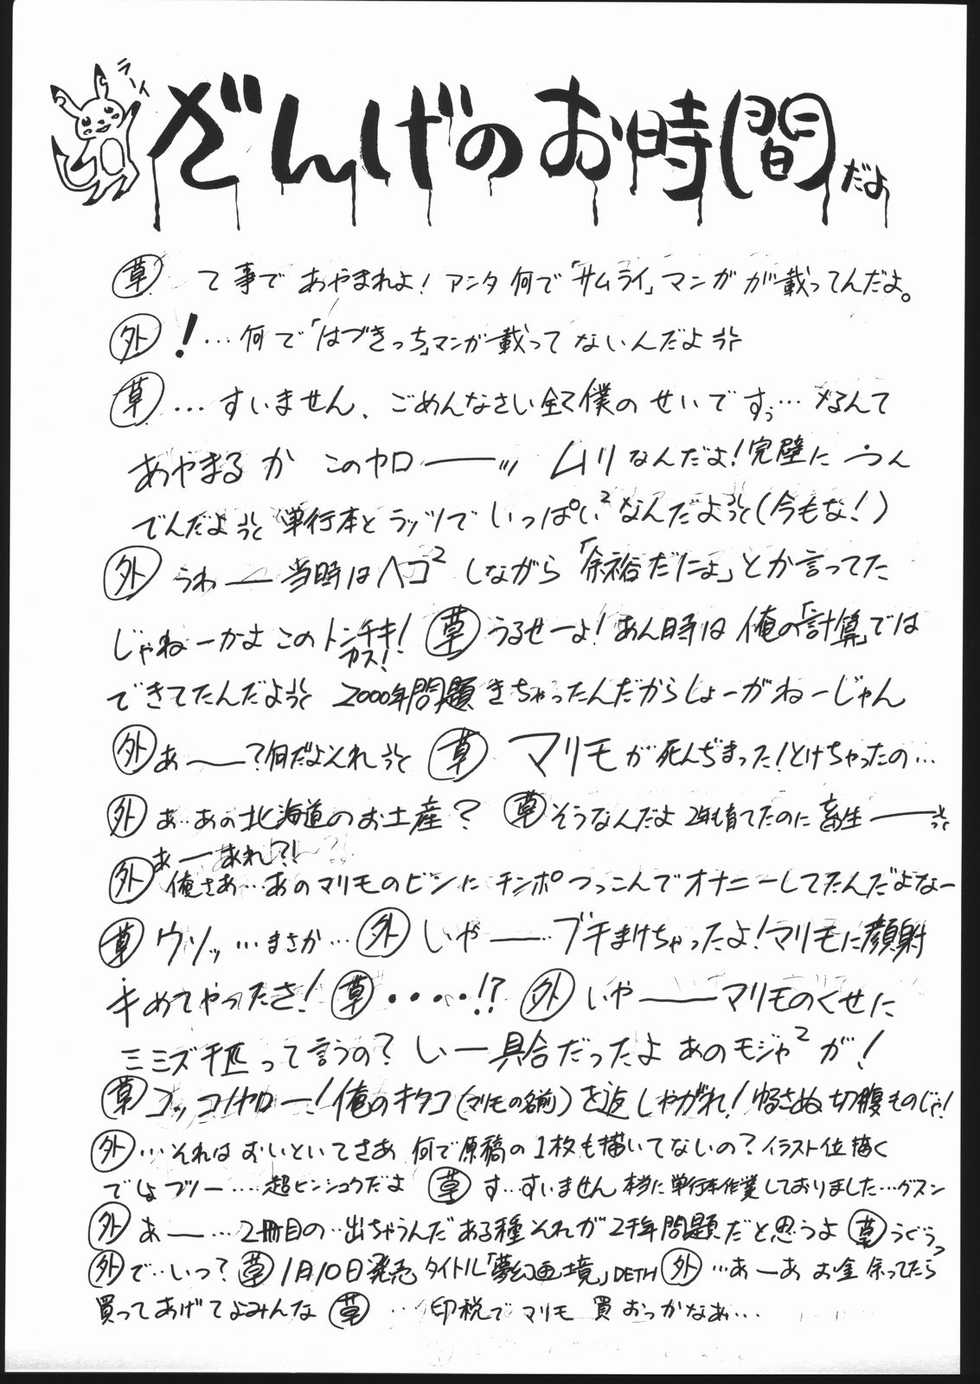 ラーイ
ざんげのお時間だよ
草 て事であやまれよ！アンタ何で「サムライ」マンガが載ってんだよ。
外 ！…何で「はづきっち」マンガ載ってないんだよ
草 …すいません、ごめんなさい全て僕のせいですぅ…なんて
あやまるかこのヤローーッ ムリなんだよ！完璧に
でんだよ 単行本とラッツでいっぱい²なんだよ（今もな！）
外 うわー当時はヘコ²しながら「余裕だにょ」とか言ってた
じゃねーかよこのトンチキ！カス！ 草 うるせーよ！あん時は俺の「計算」では
できてたんだよ 2000年問題きちゃったんだからしょーがねーじゃん
外 あ——？何だよそれ 草 マリモが死んぢまった！とけちゃったの…
外 あ…あの北海道のお土産？ 草 そうなんだよ 2年も育てたのに畜生——
あーあれ？！
外 俺さあ…あのマリモのビンにチンポつっこんでオナニーしてたんだよなー
草 ウソッ…まさか… 外 いや——…ブチまけちゃったよ！マリモに顔射
キめてやったさ！ 草 ・・・・！？ 外 いや——マリモのくせに
ミミズ千匹って言うの？ いー具合だったよあのモジャ²が！
草 コッコノヤロー！俺のキタコ（マリモの名前）を返しやがれ！ゆるさぬ切腹ものじゃ！
外 …それはおいといてさあ 何で原稿の1枚も描いてないの？イラスト位描く
でしょフツー…超ヒンシュクだよ 草 す…すいません本当に単行本作業しておりました…グスン
外 あー…2冊目の…出ちゃうんだある種それが2千年問題だと思うよ 草 うぐぅっ
外 で…いつ？ 草 1月10日発売 タイトル「夢幻画境」DETH 外 …あーあ お金余ってたら
買ってあげてよみんな 草 …印税でマリモ買おっかなぁ…